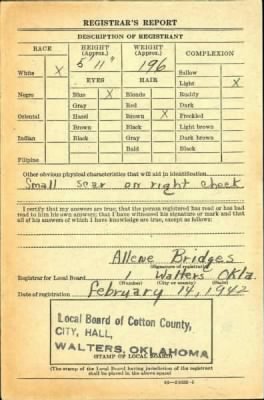 REGISTRAR'S REPORT
DESCRIPTION OF REGISTRANT
RACE HEIGHT (Approx.) WEIGHT (Approx.) COMPLEXION
5' 11" 196
White X Sallow
EYES HAIR Light X
Negro Blue X Blonde Ruddy
Gray Red Dark
Oriental Hazel Brown X Freckled
Brown Black Light brown
Indian Black Gray Dark brown
Bald Black
Filipino
Other obvious physical characteristics that will aid in identification
Small scar on right cheek
I certify that my answers are true; that the person registered has read or has had
read to him his own answers; that I have witnessed his signature or mark and that
all of his answers of which I have knowledge are true, except as follows:
Allene Bridges
(Signature of registrar)
Registrar for Local Board 1 Walters Okla.
(Number) (City or county) (State)
Date of registration February 14, 1942
Local Board of Cotton County,
CITY, HALL,
WALTERS, OKLAHOMA
(STAMP OF LOCAL BOARD)
(The stamp of the Local Board having jurisdiction of the registrant
shall be placed in the above space)